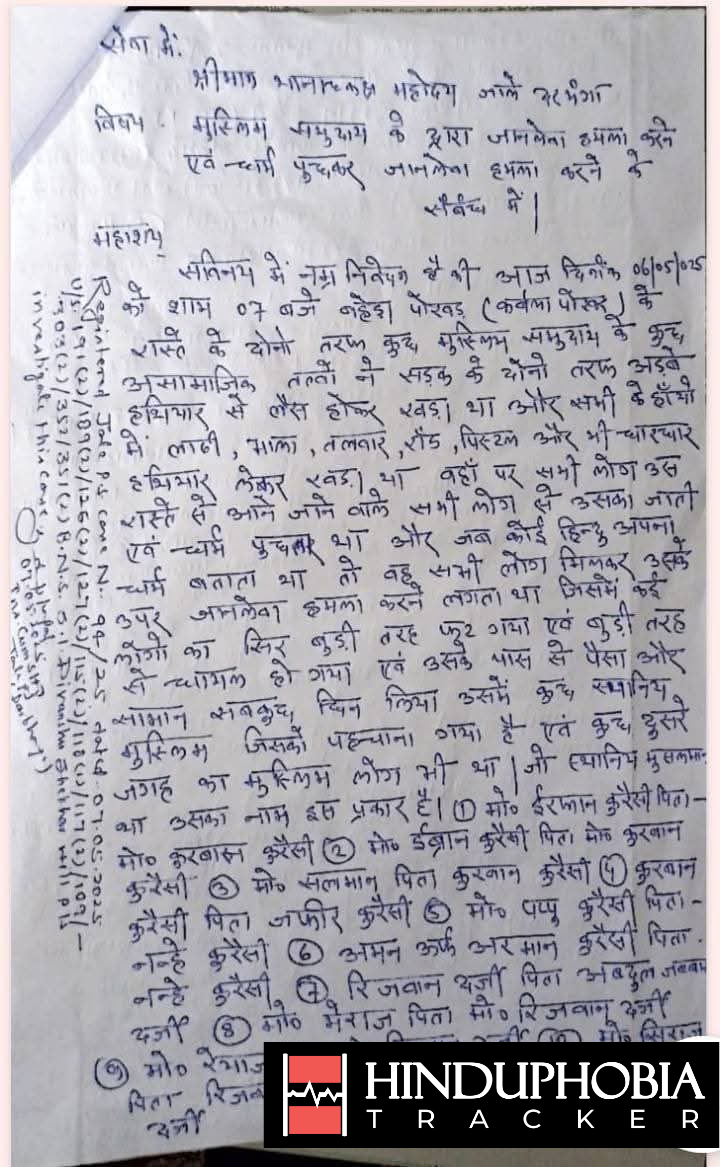 सेवा में:
श्रीमान थानाध्यक्ष महोदय जाले दरभंगा
विषय - मुस्लिम समुदाय के द्वारा जानलेवा हमला करने
एवं धर्म पुछकर जानलेवा हमला करने के
संबंध में |
महाशय,
सविनय में नम्र निवेदन है की आज दिनांक 06/05/025
को शाम 07 बजे पोखर (कर्बला पोखर) के
रास्ते के दोनो तरफ कुछ मुस्लिम समुदाय के कुछ
असामाजिक तत्वो ने सड़क के दोनो तरफ
हथियार से लैस होकर खड़ा था और सभी के हाँथो
में लाठी, भाला, तलवार, रौड, पिस्टल और भी धारधार
हथियार लेकर खड़ा था वहाँ पर सभी लोग उस
रास्ते से आने जाने वाले सभी लोग से उसका जाती
एवं धर्म था और जब कोई हिन्दु अपना
धर्म बताता था तो वह सभी लोग मिलकर उसके
उपर जानलेवा हमला करने लगता था जिसमें कई
लोगो का सिर बुड़ी तरह फुट गया एवं बुड़ी तरह
से घायल हो गया एवं उसके पास से पैसा और
सामान सबकुछ छिन लिया उसमें कुछ स्थानिय
मुस्लिम जिसको पहचाना गया है एवं कुछ दुसरे
जगह का मुस्लिम लोग भी था | जो स्थानिय मुसलमान
था उसका नाम इस प्रकार है। ① मो० ईरफान कुरैसी पिता-
मो० कुरबान कुरैसी ② मो० कुरैसी पिता मो० कुरबान
कुरैसी ③ मो० सलमान पिता कुरबान कुरैसी ④ कुरबान
कुरैसी पिता जफीर कुरैसी ⑤ मो० पप्पु कुरैसी पिता-
नन्हे कुरैसी ⑥ अमन उर्फ अरमान कुरैसी पिता-
नन्हे कुरैसी ⑦ रिजवान दर्जी पिता अबदुल जब्बार
दर्जी ⑧ मो० मेराज पिता मो० रिजवान दर्जी
⑨ मो० दर्जी मो० सिराज
पिता
दर्जी
Registered Jale P.S case N. 94/25 dated 07.05.2025
U/S 191(2)/189(2)/126(2)/127(2)/115(2)/118(1)/117(2)/109/
303(2)/352/351(2) B.N.S. S.I. will pls
investigate this case.
07.05.2025
HINDUPHOBIA
TRACKER